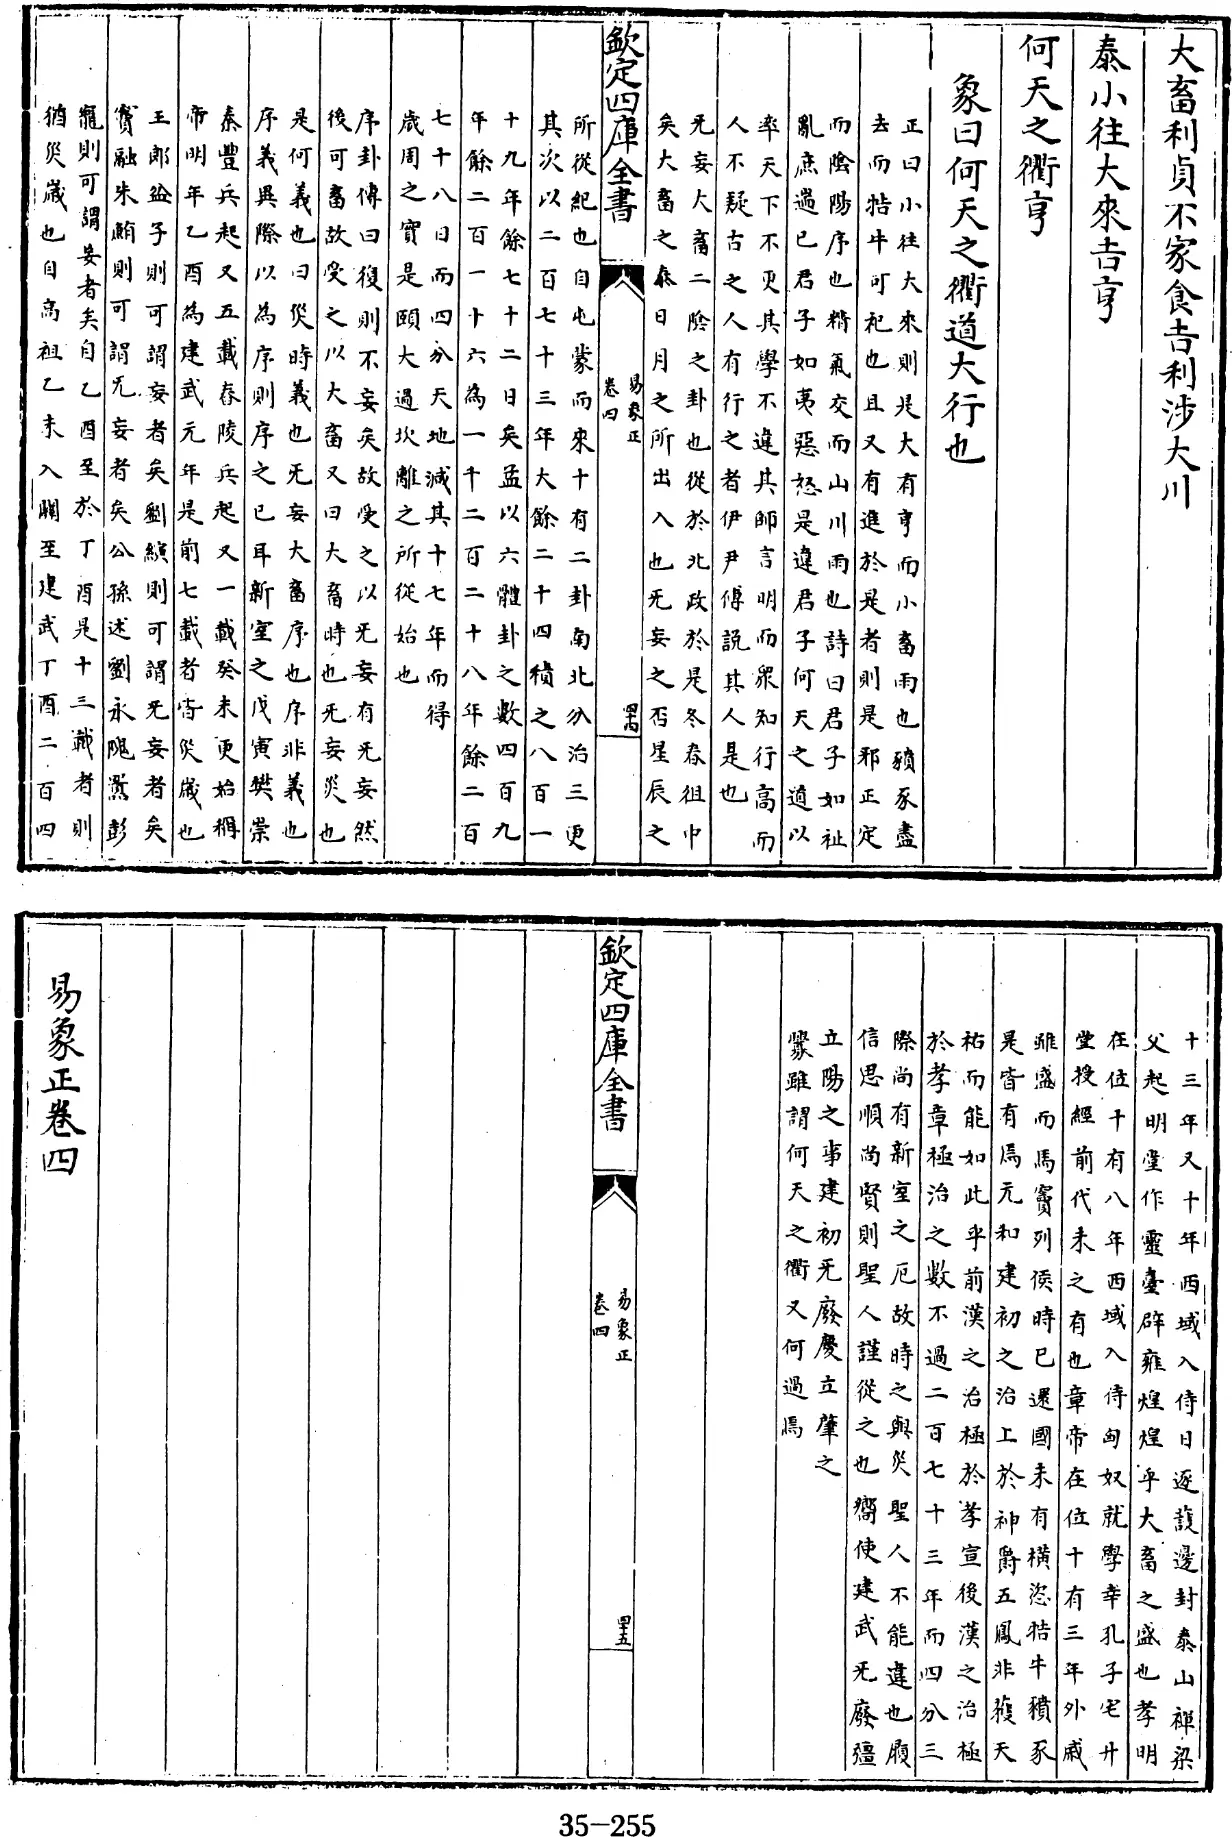 大畜利貞不家食吉利涉大川
泰小往大來吉亨
何天之衢亨
象曰何天之衢道大行也
正曰小往大來則是大有亨而小畜雨也豶豕盡
去而牿牛可祀也且又有進於是者則是邪正定
而陰陽序也精氣交而山川雨也詩曰君子如祉
亂庶遄已君子如夷惡怒是違君子何天之道以
率天下不更其學不違其師言明而眾知行高而
人不疑古之人有行之者伊尹傅說其人是也
无妄大畜二陰之卦也從於北政於是冬春徂中
矣大畜之泰日月之所出入也无妄之否星辰之
欽定四庫全書
易象正
卷四
四十四
所從紀也自屯蒙而來十有二卦南北分治三更
其次以二百七十三年大餘二十四積之八百一
十九年餘七十二日矣孟以六體卦之數四百九
年餘二百一十六為一千二百二十八年餘二百
七十八日而四分天地減其十七年而得
歲周之實是頤大過坎離之所從始也
序卦傳曰復則不妄矣故受之以无妄有无妄然
後可畜故受之以大畜又曰大畜時也无妄災也
是何義也曰災時義也无妄大畜序也序非義也
序義異際以為序則序之已耳新室之戊寅樊崇
秦豐兵起又五載舂陵兵起又一載癸未更始稱
帝明年乙酉為建武元年是前七載者皆災歲也
王郎盆子則可謂妄者矣劉縯則可謂无妄者矣
竇融朱鮪則可謂无妄者矣公孫述劉永隗囂彭
寵則可謂妄者矣自乙酉至於丁酉是十三載者則
猶災歲也自高祖乙未入關至建武丁酉二百四
十三年又十年西域入侍日逐款邊封泰山禪梁
父起明堂作靈臺辟雍煌煌乎大畜之盛也孝明
在位十有八年西域入侍匈奴就學幸孔子宅升
堂授經前代未之有也章帝在位十有三年外戚
雖盛而馬竇列侯時已還國未有橫恣牿牛豶豕
是皆有焉元和建初之治上於神爵五鳳非獲天
祐而能如此乎前漢之治極於孝宣後漢之治極
於孝章極治之數不過二百七十三年而四分三
際尚有新室之厄故時之與災聖人不能違也履
信思順尚賢則聖人謹從之也嚮使建武无廢彊
立陽之事建初无廢慶立肇之
釁雖謂何天之衢又何過焉
欽定四庫全書
易象正
卷四
四十五
易象正卷四
35-255